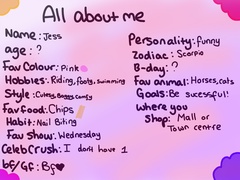 All about me
Name: Jess
age: ?
Fav Colour: Pink
Hobbies: Riding, foots, Swimming
Style: Cutesy, Baggy, Comfy
Fav food: Chips
Habit: Nail Biting
Fav Show: Wednesday
Celeb Crush: I dont have 1
bf/Gf: Bf
Personality: funny
Zodiac: Scorpio
B-day: ?
Fav animal: Horses, cats
Goals: Be sucessful!
where you
Shop: Mall or
Town centre